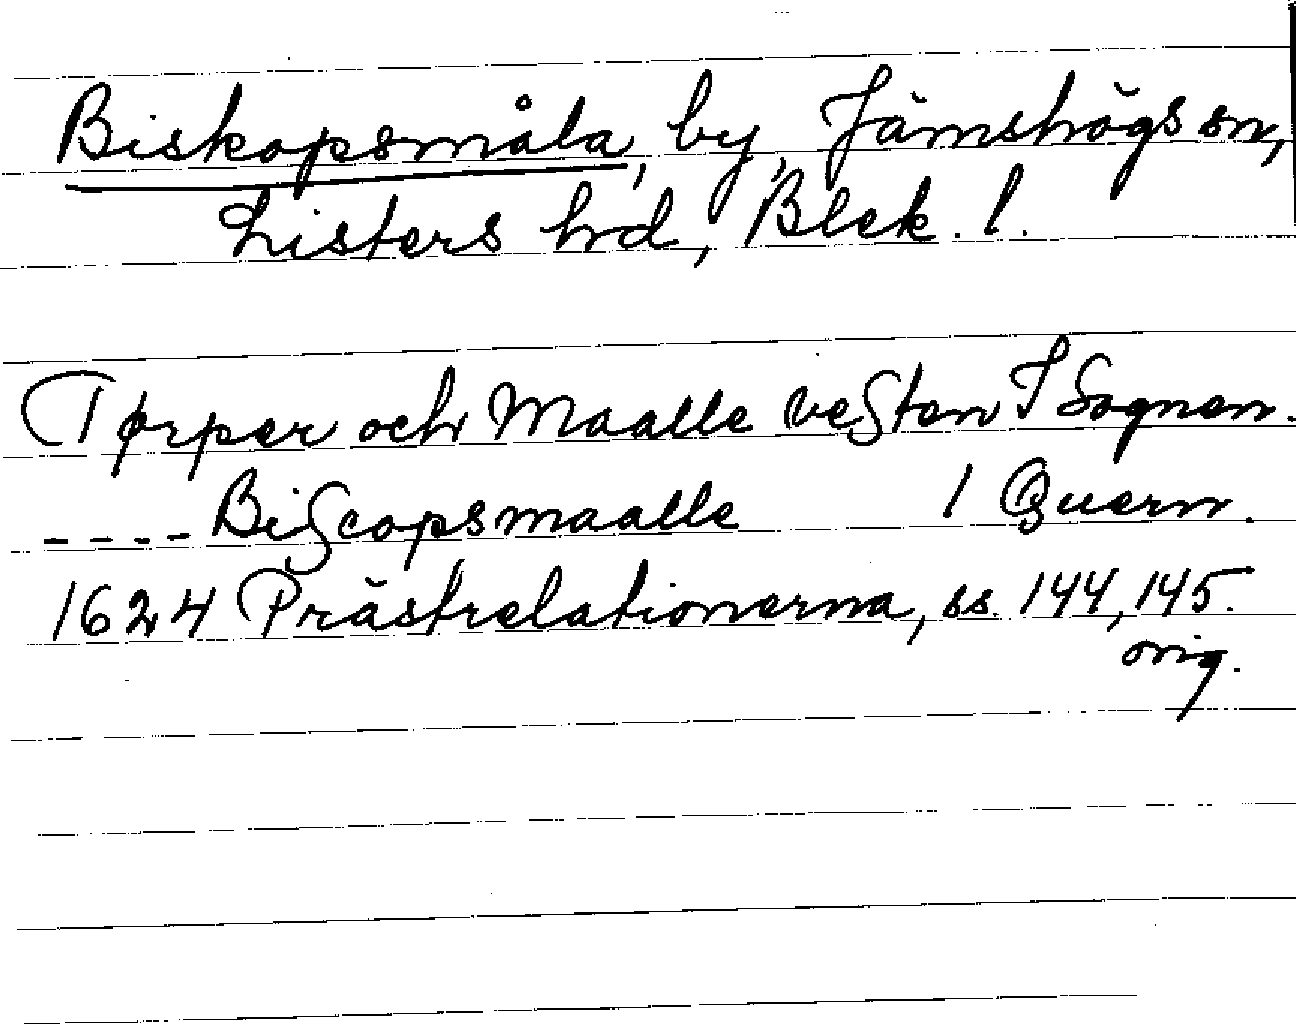 Biskopsmåla, by, Jämshögs sn,
Listers hd, Blek. l.
Tørper och Maalle vesten I Sognen.
---- Biscopsmaalle 1 Quern.
1624 Prästrelationerna, ss. 144, 145.
orig.